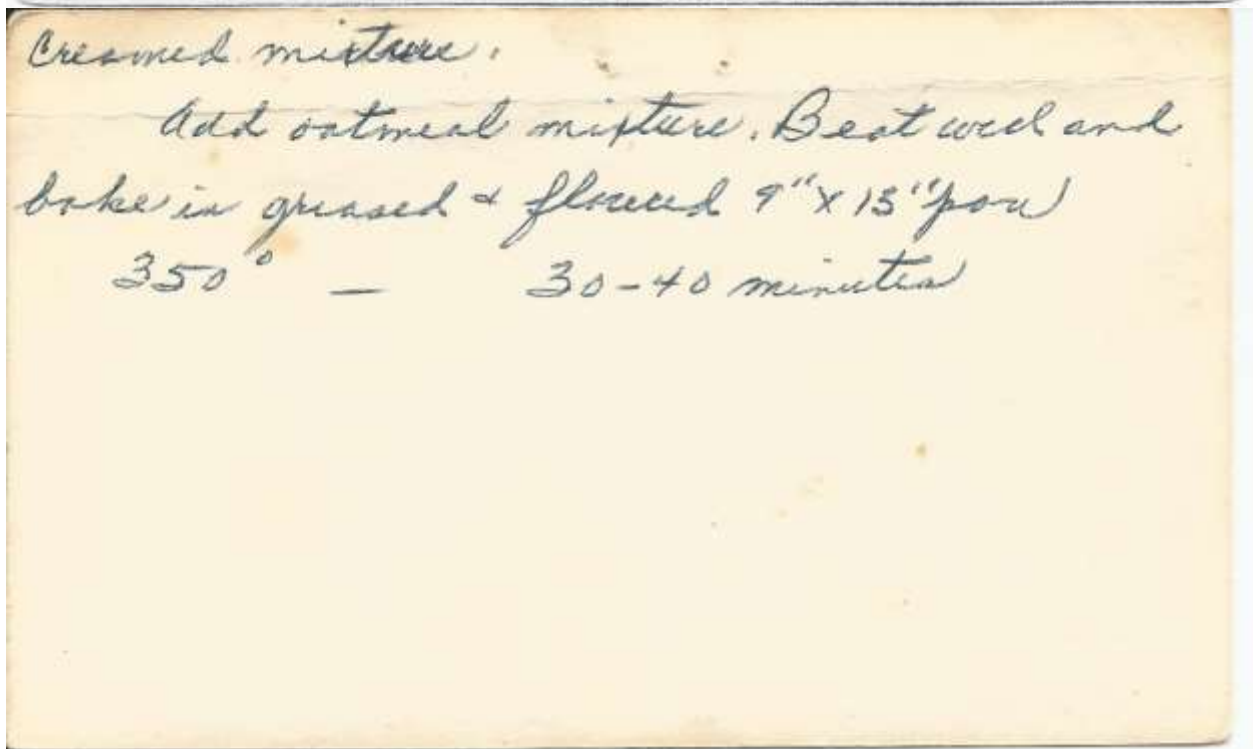 Creamed mixture.
Add oatmeal mixture. Beat well and
bake in greased & floured 9" x 13" pan
350° — 30-40 minutes